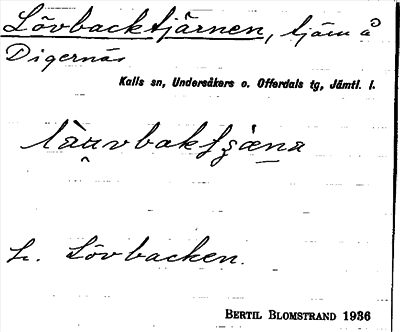 Lövbacktjärnen, tjärn å
Digernäs
Kalls sn, Undersåkers o. Offerdals tg, Jämtl. l.
L. Lövbacken.
BERTIL BLOMSTRAND 1936